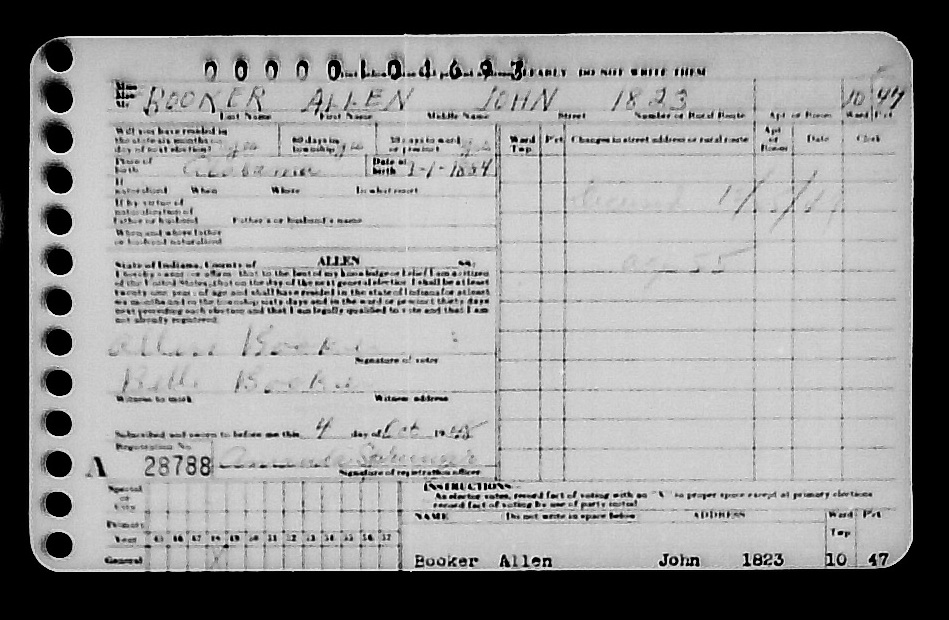 00000104693
CLEARLY DO NOT WRITE THEM
Miss
Mrs
Mr BOOKER ALLEN JOHN 1823 10 47
Last Name First Name Middle Name Street Number or Rural Route Apt or Room Ward Pct
Will you have resided in the state six months to day of next election? yes 60 days in township yes 30 days in ward or precinct yes
Ward Twp. Pct Changes in street address or rural route Apt or Room Date Clerk
Place of birth Alabama Date of birth -1-1884
If naturalized When Where In what court
If by virtue of naturalization of Father or husband Father's or husband's name
When and where father or husband naturalized
age 55
State of Indiana, County of ALLEN ss:
I hereby swear or affirm that to the best of my knowledge or belief I am a citizen
of the United States, that on the day of the next general election I shall be at least
twenty one years of age and shall have resided in the state of Indiana for at least
six months and in the township sixty days and in the ward or precinct thirty days
next preceding such election and that I am legally qualified to vote and that I am
not already registered.
Allen Booker
Signature of voter
Belle Booker
Witness to mark Witness address
Subscribed and sworn to before me this 4 day of Oct 19 48
Registration No.
A 28788 Amanda
Signature of registration officer
INSTRUCTIONS
An elector votes, record fact of voting with an "X" in proper space except at primary elections
record fact of voting by use of party initial
Special or City
Primary
NAME Do not write in space below ADDRESS Ward Twp Pct.
Year 45 46 47 48 49 50 51 52 53 54 55 56 57
General X
Booker Allen John 1823 10 47